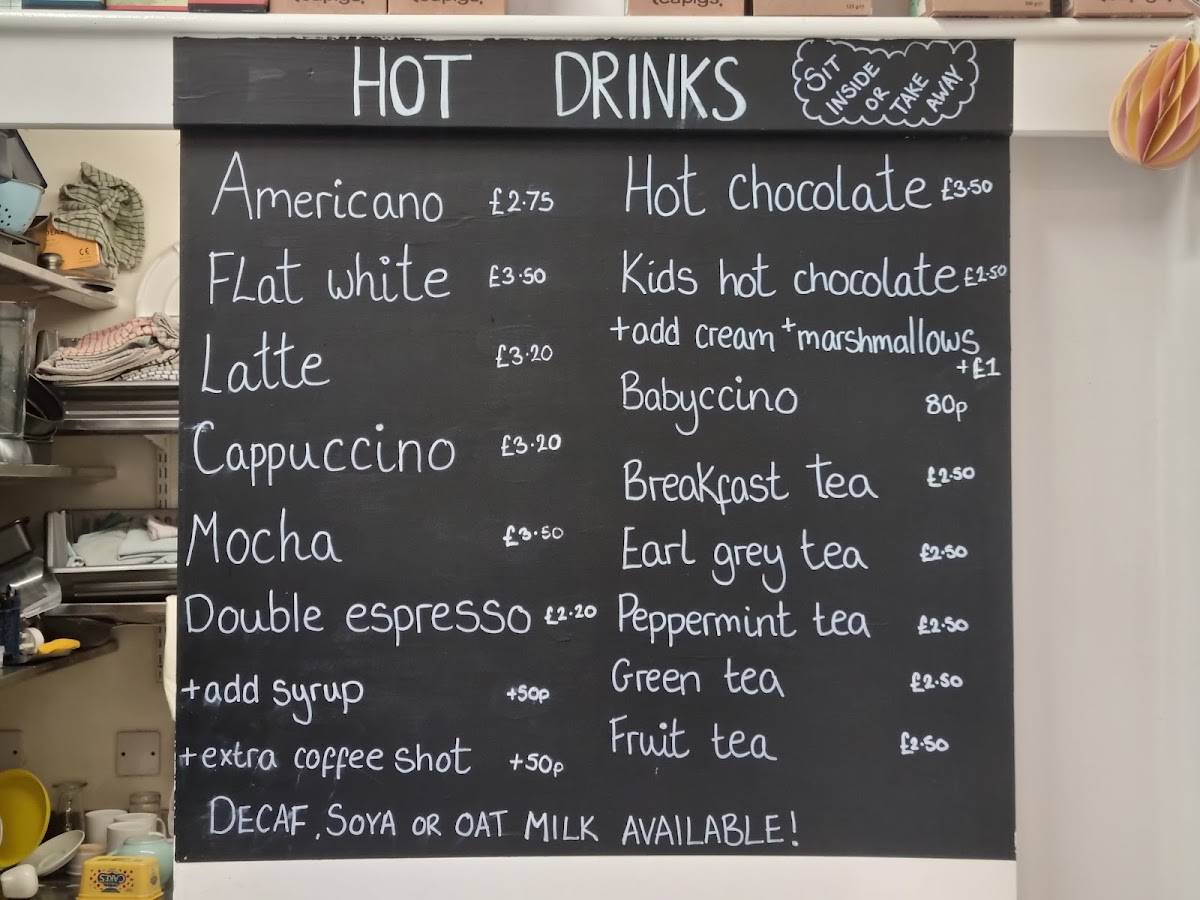 HOT DRINKS
SIT
INSIDE
OR
TAKE
AWAY
Americano £2.75
Flat white £3.50
Latte £3.20
Cappuccino £3.20
Mocha £3.50
Double espresso £2.20
+add syrup +50p
+extra coffee shot +50p
Hot chocolate £3.50
Kids hot chocolate £2.50
+add cream + marshmallows
+£1
Babyccino 80p
Breakfast tea £2.50
Earl grey tea £2.50
Peppermint tea £2.50
Green tea £2.50
Fruit tea £2.50
DECAF, SOYA OR OAT MILK AVAILABLE!